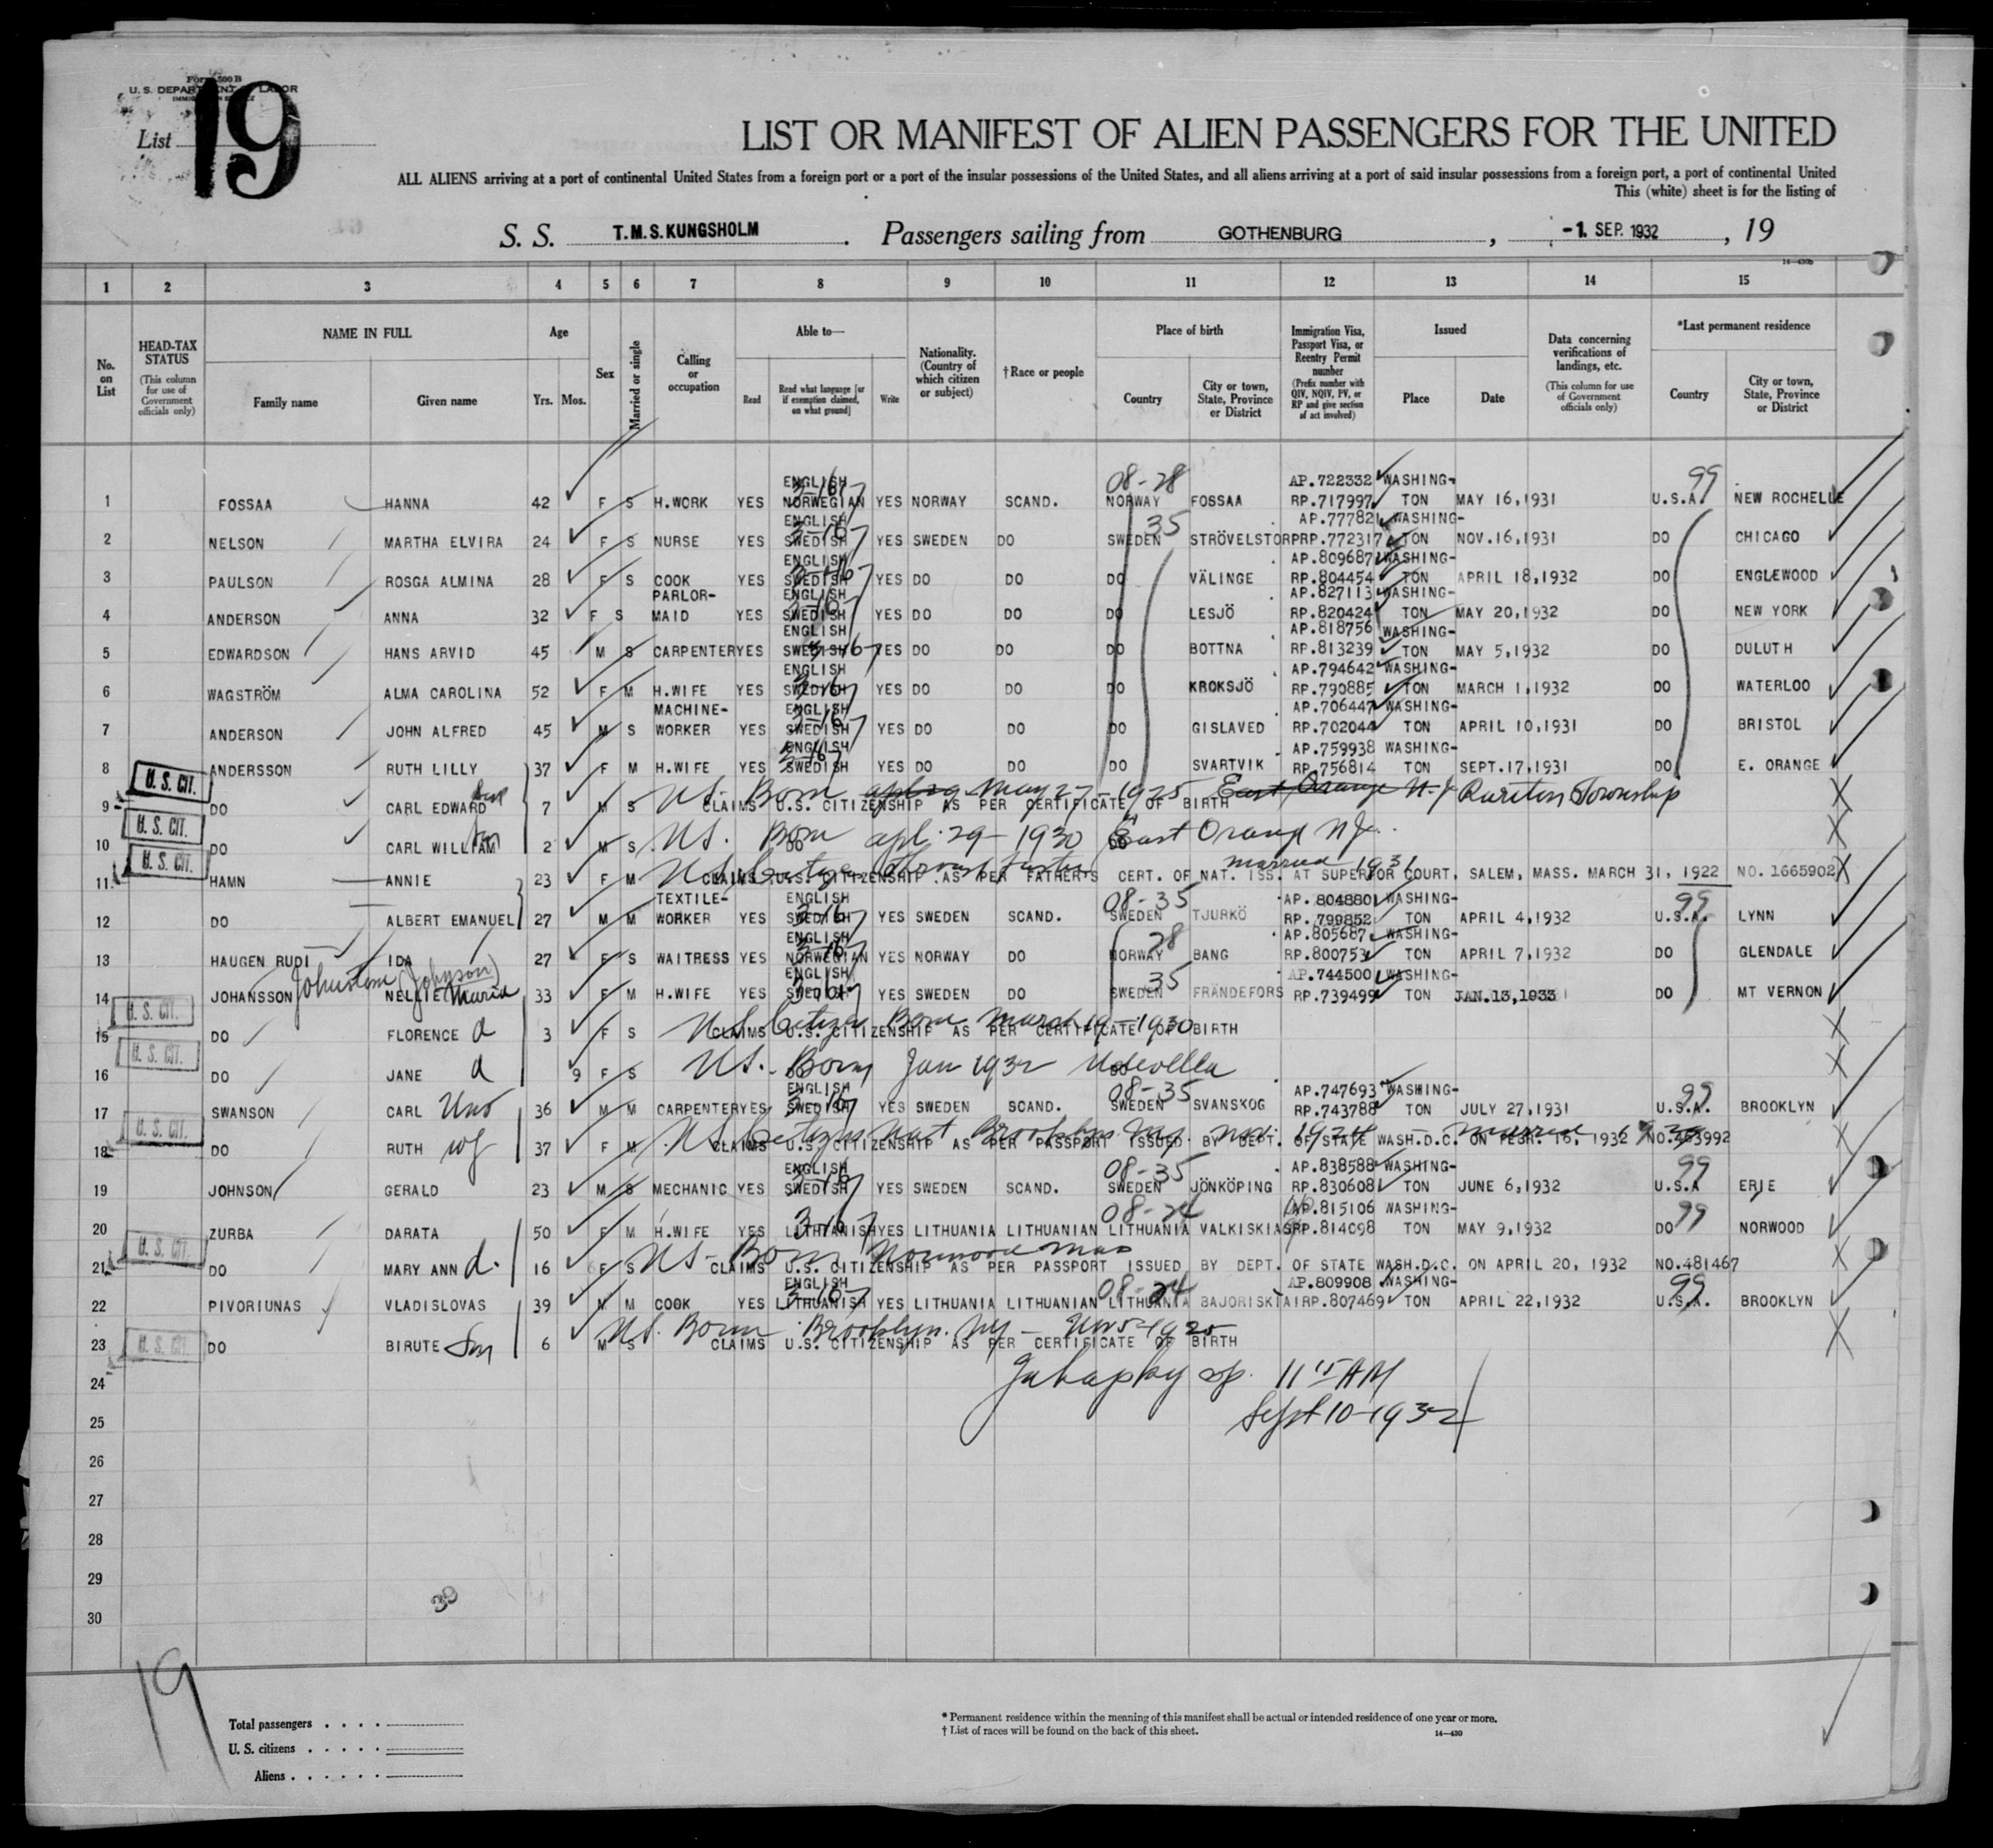 Form 500 B
U. S. DEPARTMENT OF LABOR
List 19
LIST OR MANIFEST OF ALIEN PASSENGERS FOR THE UNITED
ALL ALIENS arriving at a port of continental United States from a foreign port or a port of the insular possessions of the United States, and all aliens arriving at a port of said insular possessions from a foreign port, a port of continental United
This (white) sheet is for the listing of
S. S. T.M.S.KUNGSHOLM. Passengers sailing from GOTHENBURG, -1. SEP. 1932, 19
14-430b
1 2 3 4 5 6 7 8 9 10 11 12 13 14 15
No. on List
HEAD-TAX STATUS (This column for use of Government officials only)
NAME IN FULL
Family name
Given name
Age
Yrs. Mos.
Sex
Married or single
Calling or occupation
Able to—
Read
Read what language [or if exemption claimed, on what ground]
Write
Nationality. (Country of which citizen or subject)
†Race or people
Place of birth
Country
City or town, State, Province or District
Immigration Visa, Passport Visa, or Reentry Permit number (Prefix number with QIV, NQIV, PV, or RP and give section of act involved)
Issued
Place
Date
Data concerning verifications of landings, etc. (This column for use of Government officials only)
*Last permanent residence
Country
City or town, State, Province or District
ENGLISH 08-28 AP.722332 WASHING- 99
1 FOSSAA HANNA 42 F S H.WORK YES NORWEGIAN YES NORWAY SCAND. NORWAY FOSSAA RP.717997 TON MAY 16,1931 U.S.A. NEW ROCHELLE
ENGLISH 35 AP.777821 WASHING-
2 NELSON MARTHA ELVIRA 24 F S NURSE YES SWEDISH YES SWEDEN DO SWEDEN STRÖVELSTORP RP.772317 TON NOV.16,1931 DO CHICAGO
ENGLISH AP.809687 WASHING-
3 PAULSON ROSGA ALMINA 28 F S COOK YES SWEDISH YES DO DO DO VÄLINGE RP.804454 TON APRIL 18,1932 DO ENGLEWOOD
PARLOR- ENGLISH AP.827113 WASHING-
4 ANDERSON ANNA 32 F S MAID YES SWEDISH YES DO DO DO LESJÖ RP.820424 TON MAY 20,1932 DO NEW YORK
ENGLISH AP.818756 WASHING-
5 EDWARDSON HANS ARVID 45 M S CARPENTER YES SWEDISH YES DO DO DO BOTTNA RP.813239 TON MAY 5,1932 DO DULUTH
ENGLISH AP.794642 WASHING-
6 WAGSTRÖM ALMA CAROLINA 52 F M H.WIFE YES SWEDISH YES DO DO DO KROKSJÖ RP.790885 TON MARCH 1,1932 DO WATERLOO
MACHINE- ENGLISH AP.706447 WASHING-
7 ANDERSON JOHN ALFRED 45 M S WORKER YES SWEDISH YES DO DO DO GISLAVED RP.702044 TON APRIL 10,1931 DO BRISTOL
ENGLISH AP.759938 WASHING-
8 ANDERSSON RUTH LILLY 37 F M H.WIFE YES SWEDISH YES DO DO DO SVARTVIK RP.756814 TON SEPT.17,1931 DO E. ORANGE
U. S. CIT. US. Born May 27-1925 East Orange N.J Rariton Township
9 DO CARL EDWARD 7 M S CLAIMS U.S. CITIZENSHIP AS PER CERTIFICATE OF BIRTH
U. S. CIT. US. Born apl. 29-1930 East Orange N Je.
10 DO CARL WILLIAM son 2 M S DO DO
U. S. CIT. married 1931
11 HAMN ANNIE 23 F M CLAIMS U.S. CITIZENSHIP AS PER FATHER'S CERT. OF NAT. ISS. AT SUPERIOR COURT, SALEM, MASS. MARCH 31, 1922 NO. 1665902
TEXTILE- ENGLISH 08-35 AP. 804880 WASHING- 99
12 DO ALBERT EMANUEL 27 M M WORKER YES SWEDISH YES SWEDEN SCAND. SWEDEN TJURKÖ RP. 799852 TON APRIL 4,1932 U.S.A. LYNN
ENGLISH 28 AP.805687 WASHING-
13 HAUGEN RUDI IDA 27 F S WAITRESS YES NORWEGIAN YES NORWAY DO NORWAY BANG RP.800753 TON APRIL 7,1932 DO GLENDALE
Johnstone (Johnson) ENGLISH 35 AP.744500 WASHING-
14 JOHANSSON NELLIE Maria 33 F M H.WIFE YES SWEDISH YES SWEDEN DO SWEDEN FRÄNDEFORS RP.739499 TON JAN.13,1933 DO MT VERNON
U. S. CIT. US Citizen Born March 19-1930
15 DO FLORENCE d 3 F S CLAIMS U.S. CITIZENSHIP AS PER CERTIFICATE OF BIRTH
U. S. CIT. US. Born Jan 1932
16 DO JANE d 9 F S DO DO
ENGLISH 08-35 AP.747693 WASHING- 99
17 SWANSON CARL Uno 36 M M CARPENTER YES SWEDISH YES SWEDEN SCAND. SWEDEN SVANSKOG RP.743788 TON JULY 27,1931 U.S.A. BROOKLYN
U. S. CIT. US Citizen
18 DO RUTH wf 37 F M CLAIMS U.S. CITIZENSHIP AS PER PASSPORT ISSUED BY DEPT. OF STATE WASH.D.C. ON FEBR. 16, 1932 NO.453992
ENGLISH 08-35 AP.838588 WASHING- 99
19 JOHNSON GERALD 23 M S MECHANIC YES SWEDISH YES SWEDEN SCAND. SWEDEN JÖNKÖPING RP.830608 TON JUNE 6,1932 U.S.A ERIE
3-16 08-24 AP.815106 WASHING- 99
20 ZURBA DARATA 50 F M H.WIFE YES LITHUANISH YES LITHUANIA LITHUANIAN LITHUANIA VALKISKIAS RP.814098 TON MAY 9,1932 DO NORWOOD
U. S. CIT. US- Born Norwood Mas
21 DO MARY ANN d. 16 F S CLAIMS U.S. CITIZENSHIP AS PER PASSPORT ISSUED BY DEPT. OF STATE WASH.D.C. ON APRIL 20, 1932 NO.481467
ENGLISH 08-24 AP.809908 WASHING- 99
22 PIVORIUNAS VLADISLOVAS 39 M M COOK YES LITHUANISH YES LITHUANIA LITHUANIAN LITHUANIA BAJORISKIAI RP.807469 TON APRIL 22,1932 U.S.A. BROOKLYN
U. S. CIT. US. Born Brooklyn. NY - 1925
23 DO BIRUTE Son 6 M S CLAIMS U.S. CITIZENSHIP AS PER CERTIFICATE OF BIRTH
24 11 15 AM
25 Sept 10-1932
26
27
28
29
30
19
Total passengers . . . .
U. S. citizens . . . . .
Aliens . . . . . .
* Permanent residence within the meaning of this manifest shall be actual or intended residence of one year or more.
† List of races will be found on the back of this sheet.
14-430